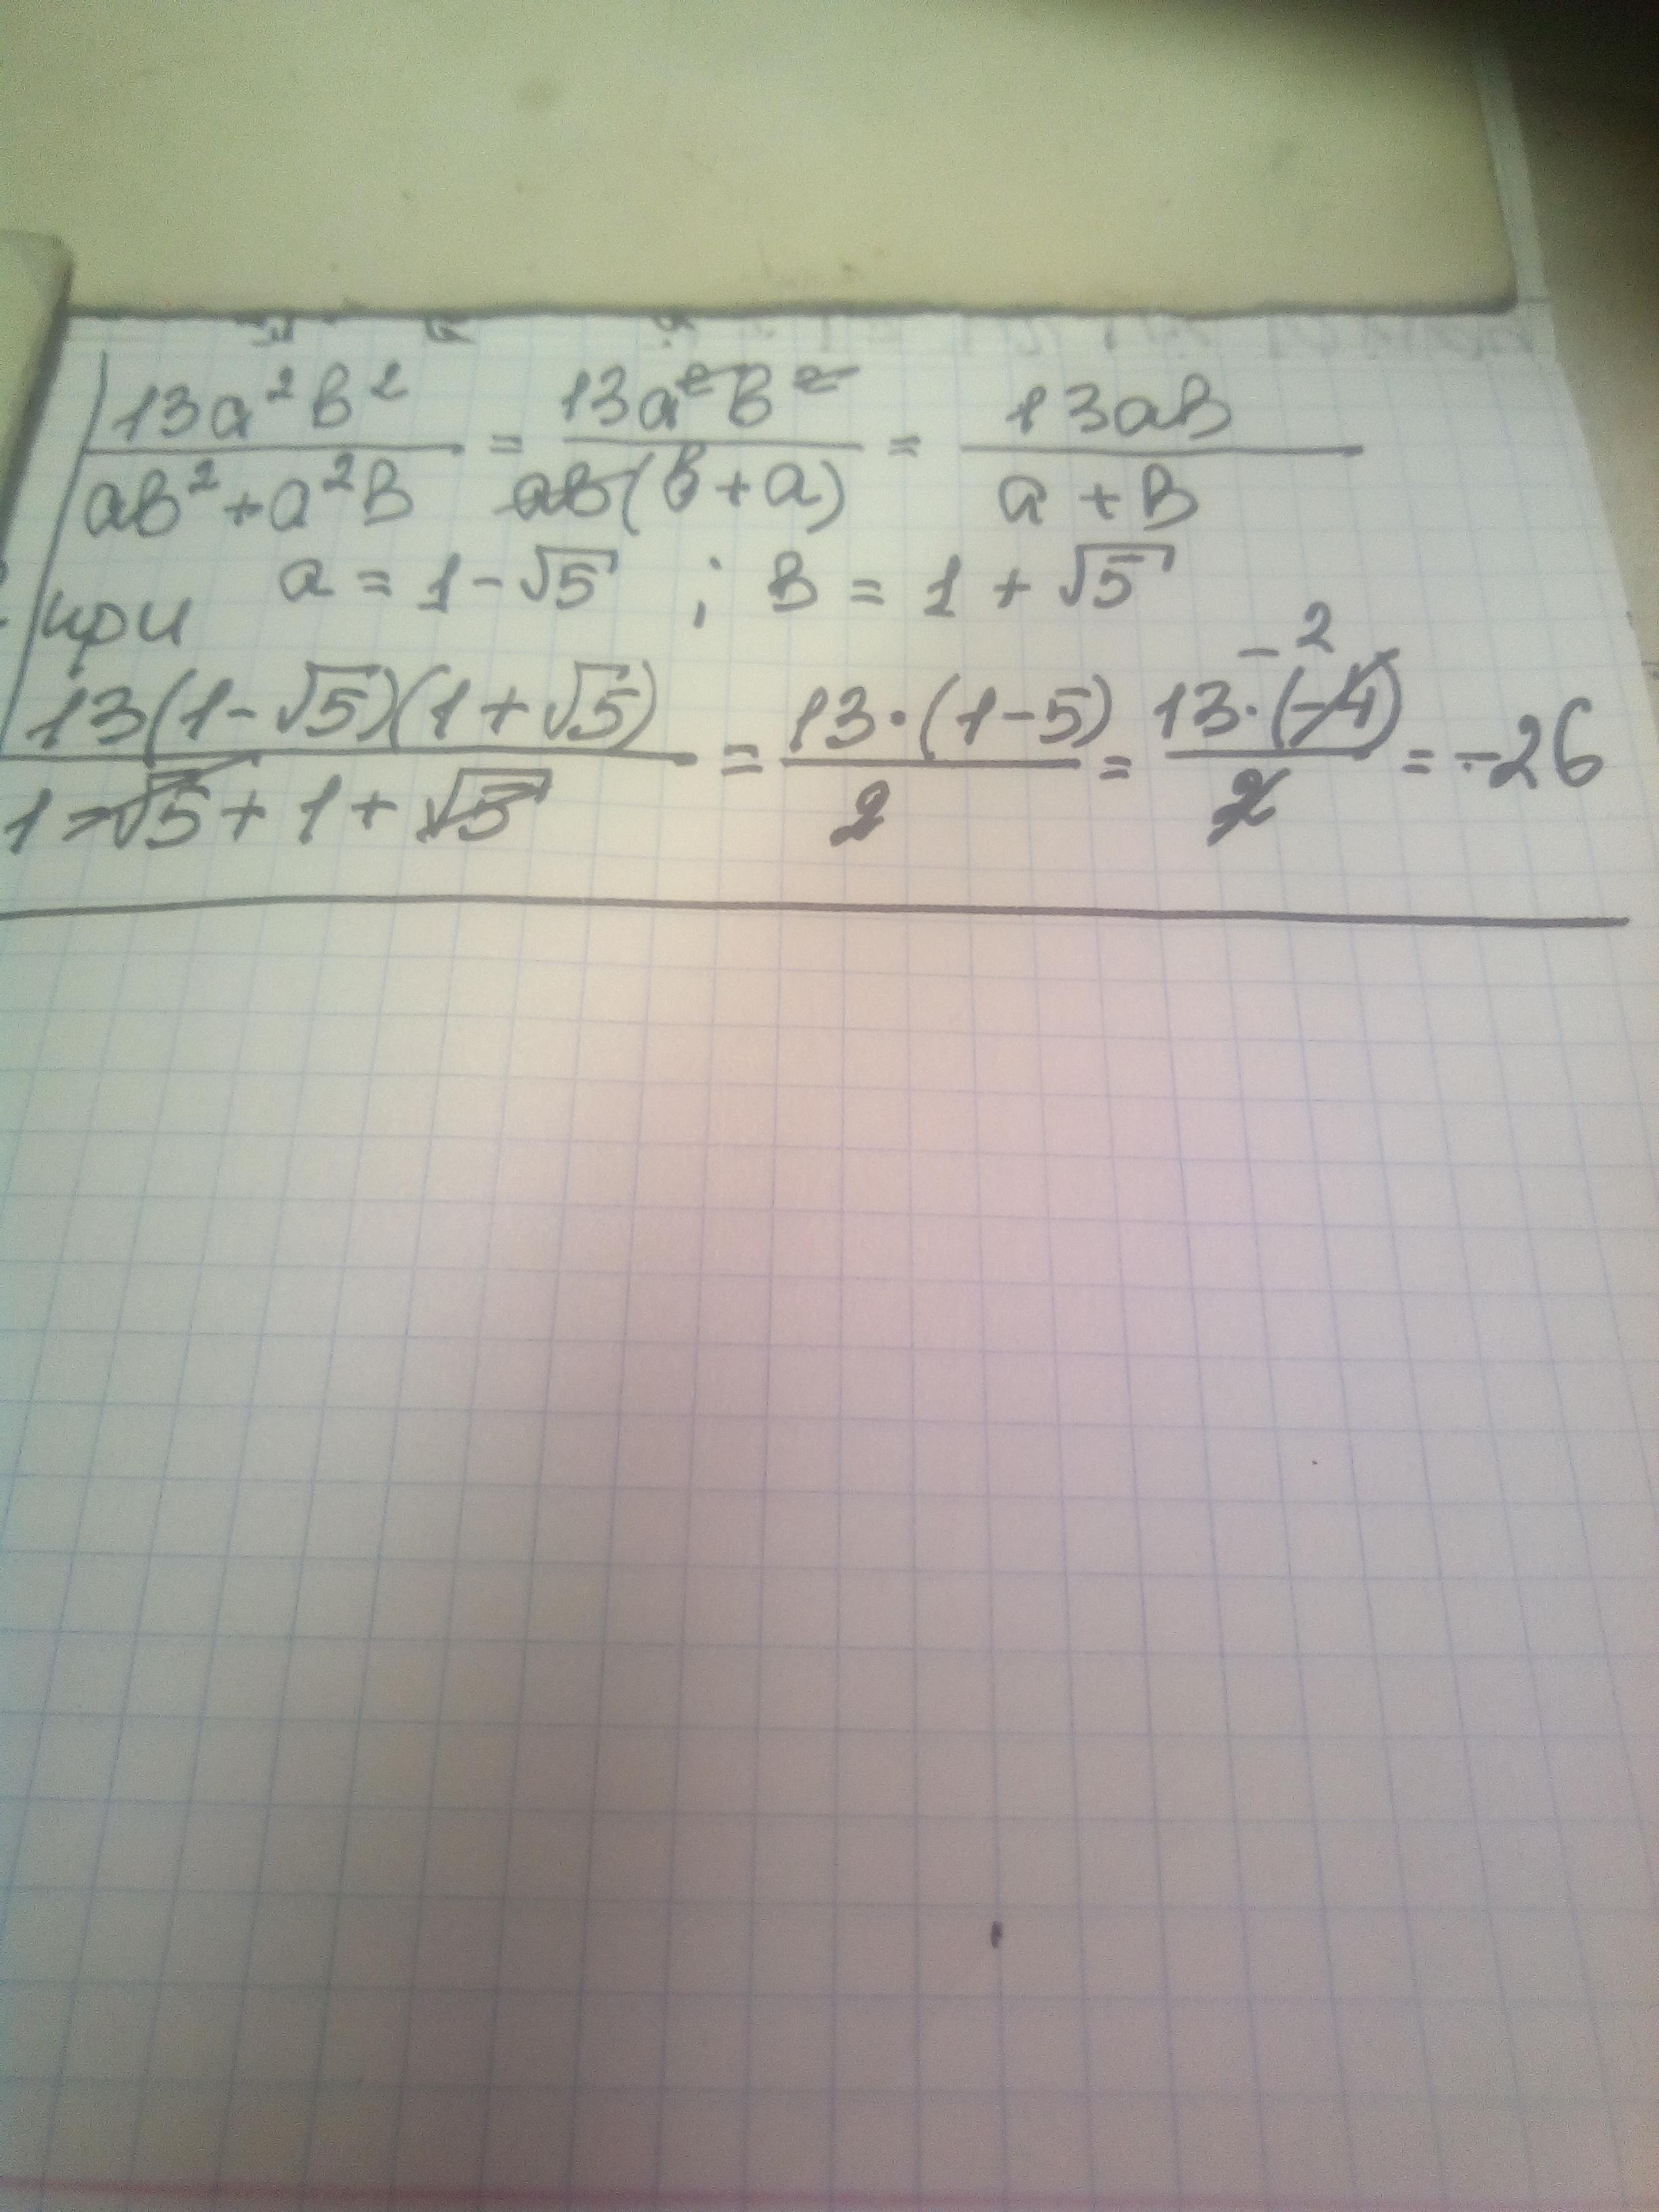 13a²b² / ab²+a²b = 13a²b² / ab(b+a) = 13ab / a+b
при a = 1-√5 ; b = 1+√5
13(1-√5)(1+√5) / 1-√5+1+√5 = 13·(1-5) / 2 = 13·(-4) -2 / 2 = -26